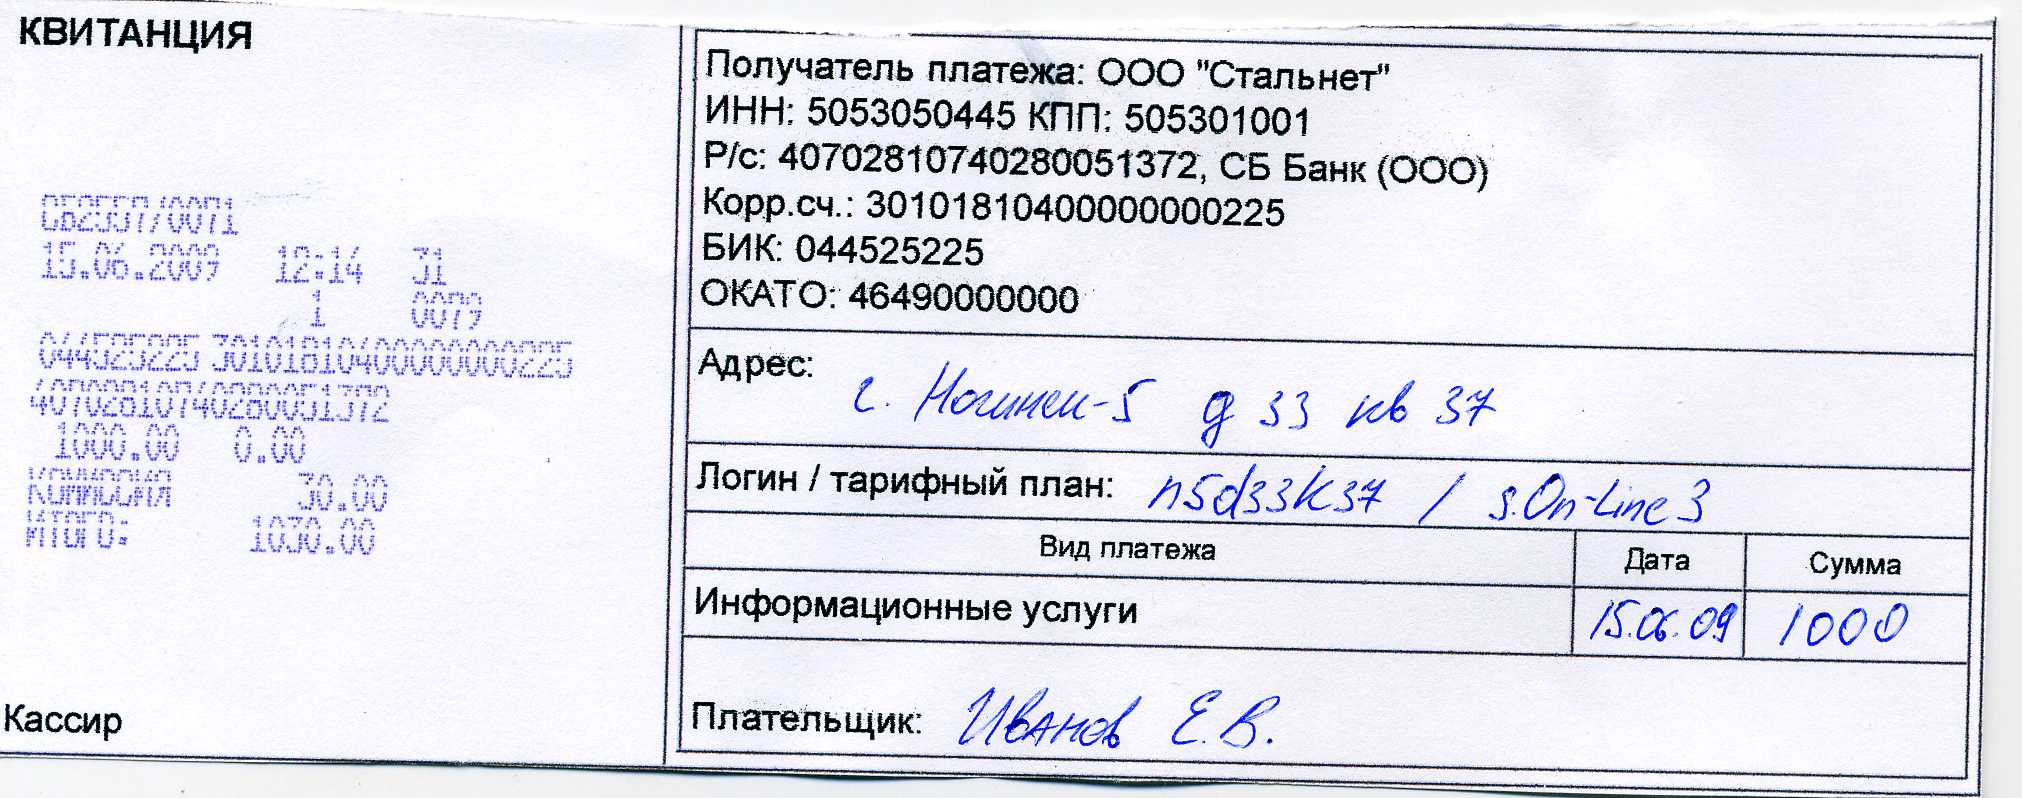 КВИТАНЦИЯ
СБ2557/0071
15.06.2009 12:14 31
1 0079
044525225 30101810400000000225
40702810740280051372
1000.00 0.00
КОМИССИЯ 30.00
ИТОГО: 1030.00
Кассир
Получатель платежа: ООО "Стальнет"
ИНН: 5053050445 КПП: 505301001
Р/с: 40702810740280051372, СБ Банк (ООО)
Корр.сч.: 30101810400000000225
БИК: 044525225
ОКАТО: 46490000000
Адрес: г. Ногинск-5 д 33 кв 37
Логин / тарифный план: n5d33k37 / s.On-Line 3
Вид платежа Дата Сумма
Информационные услуги 15.06.09 1000
Плательщик: Иванов Е.В.